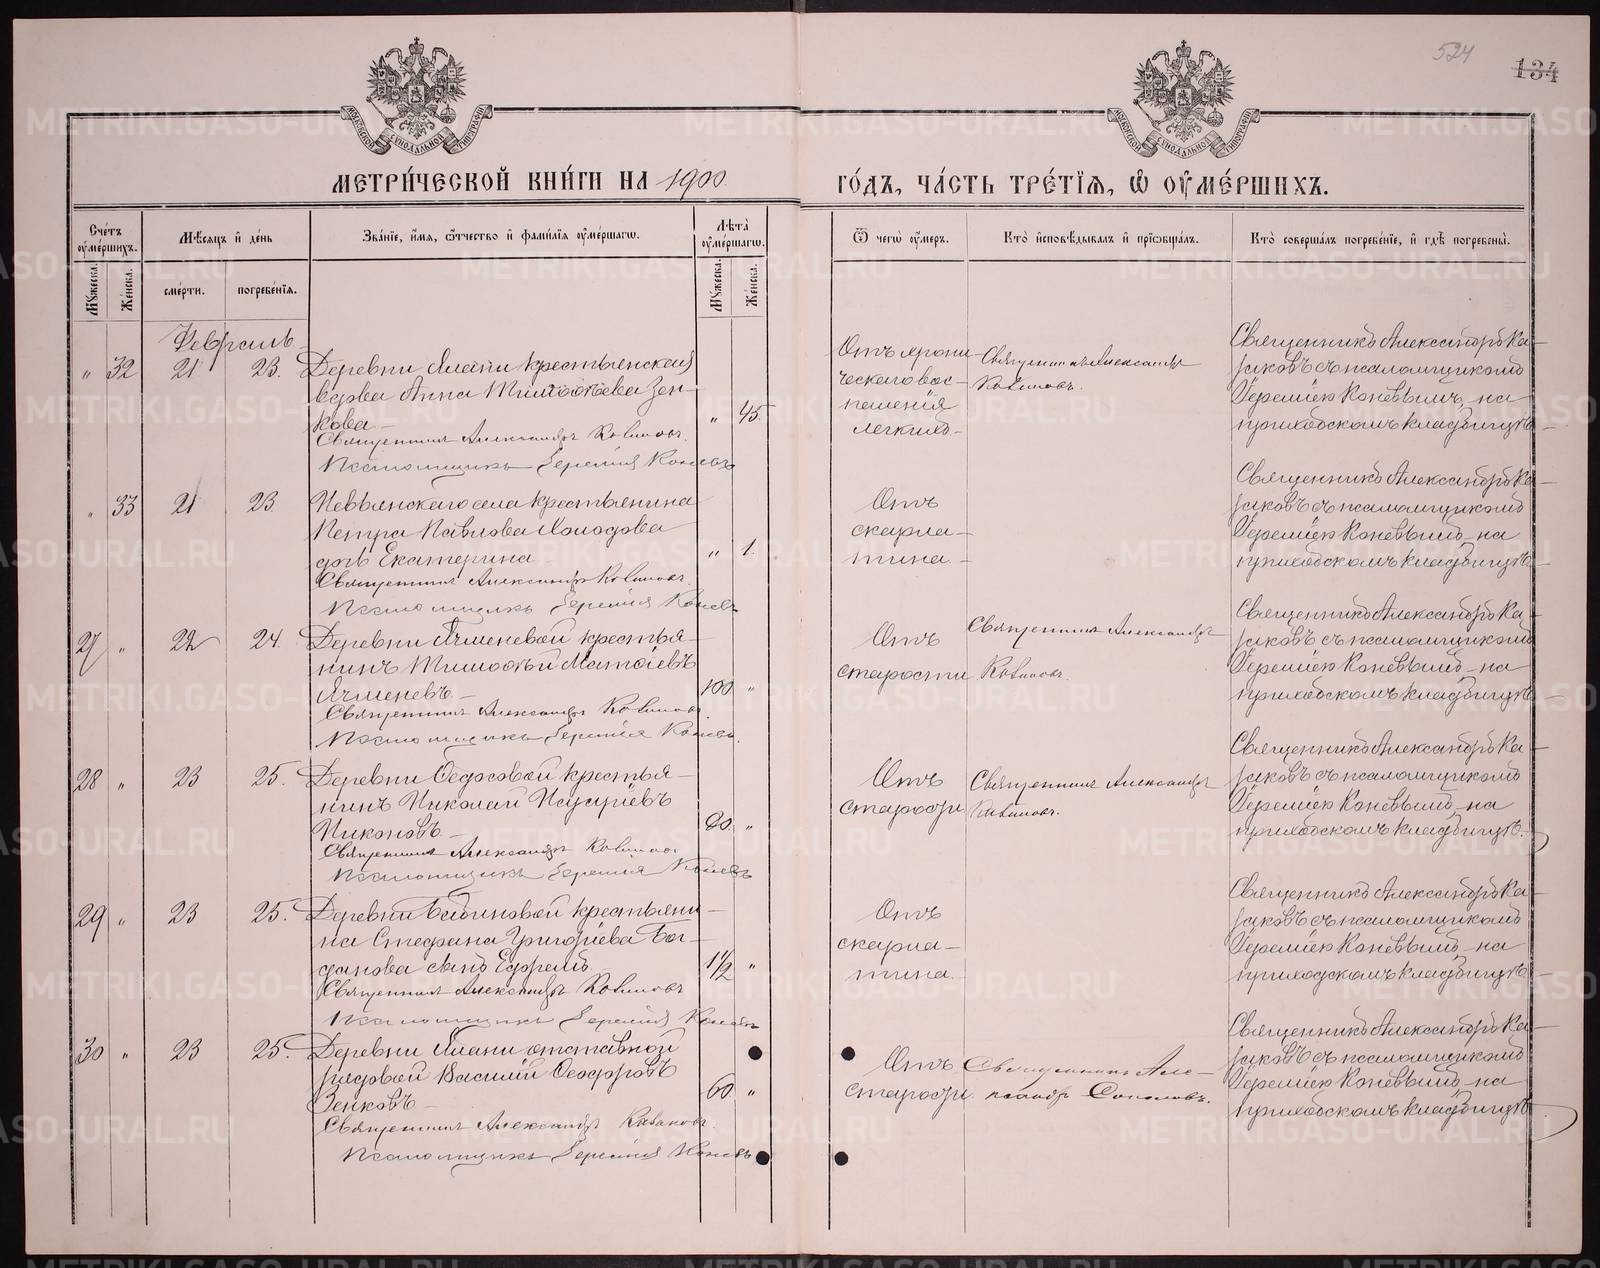 524
134
МЕТРИ́ЧЕСКОЙ КНИ́ГИ НА 1900 ГО́ДЪ, ЧА́СТЬ ТРЕ́ТІѦ, Ѡ҆ ОУ҆МЕ́РШИХЪ.
Сче́тъ оу҆ме́ршихъ.
Мꙋ́жеска.
Же́нска.
Мѣ́сѧцъ и҆ де́нь
сме́рти.
погребе́нїѧ.
Зва́нїе, и҆́мѧ, ѻ҆́тчество и҆ фами́лїѧ оу҆ме́ршагѡ.
Лѣ́та оу҆ме́ршагѡ.
Мꙋ́жеска.
Же́нска.
Ѿ чегѡ̀ оу҆́меръ.
Кто̀ и҆сповѣ́дывалъ и҆ прїѡбща́лъ.
Кто̀ соверша́лъ погребе́нїе, и҆ гдѣ̀ погребены̀.
Февраль
" 32 21 23.
Деревни Ялани крестьянская
вдова Анна Тимофѣева Зен-
кова
" 45
Священникъ Александръ Казаковъ.
Псаломщикъ Іеремія Коневъ
Отъ хрони-
ческаго вос-
паленія
легкихъ
Священникъ Александръ
Казаковъ.
Священникъ Александръ Ка-
заковъ съ псаломщикомъ
Іереміею Коневымъ на
приходскомъ кладбищѣ
" 33 21 23
Невьянскаго села крестьянина
Петра Павлова Холодова
дочь Екатерина
" 1.
Священникъ Александръ Казаковъ.
Псаломщикъ Іеремія Коневъ
Отъ
скарла-
тина
Священникъ Александръ Ка-
заковъ съ псаломщикомъ
Іереміею Коневымъ на
приходскомъ кладбищѣ
27 " 22 24.
Деревни Ячменевой крестья-
нинъ Тимофѣй Матѳіевъ
Ячменевъ
100 "
Священникъ Александръ Казаковъ.
Псаломщикъ Іеремія Коневъ.
Отъ
старости
Священникъ Александръ
Казаковъ.
Священникъ Александръ Ка-
заковъ съ псаломщикомъ
Іереміею Коневымъ на
приходскомъ кладбищѣ
28 " 23 25.
Деревни Ѳедосовой крестья-
нинъ Николай
Никоновъ
80. "
Священникъ Александръ Казаковъ
Псаломщикъ Іеремія Коневъ
Отъ
старости
Священникъ Александръ
Казаковъ.
Священникъ Александръ Ка-
заковъ съ псаломщикомъ
Іереміею Коневымъ на
приходскомъ кладбищѣ.
29 " 23 25.
Деревни Бабиновой крестьяни-
на Стефана Григорьева Бог-
данова сынъ Ефремъ
1½ "
Священникъ Александръ Казаковъ
Псаломщикъ Іеремія Коневъ
Отъ
скарла-
тина
Священникъ Александръ Ка-
заковъ съ псаломщикомъ
Іереміею Коневымъ на
приходскомъ кладбищѣ
30 " 23 25.
Деревни Ялани отставной
рядовой Василій Ѳеодоровъ
Зенковъ
60 "
Священникъ Александръ Казаковъ.
Псаломщикъ Іеремія Коневъ
Отъ
старости.
Священникъ Але-
ксандръ Соколовъ.
Священникъ Александръ Ка-
заковъ съ псаломщикомъ
Іереміею Коневымъ на
приходскомъ кладбищѣ
METRIKI.GASO-URAL.RU